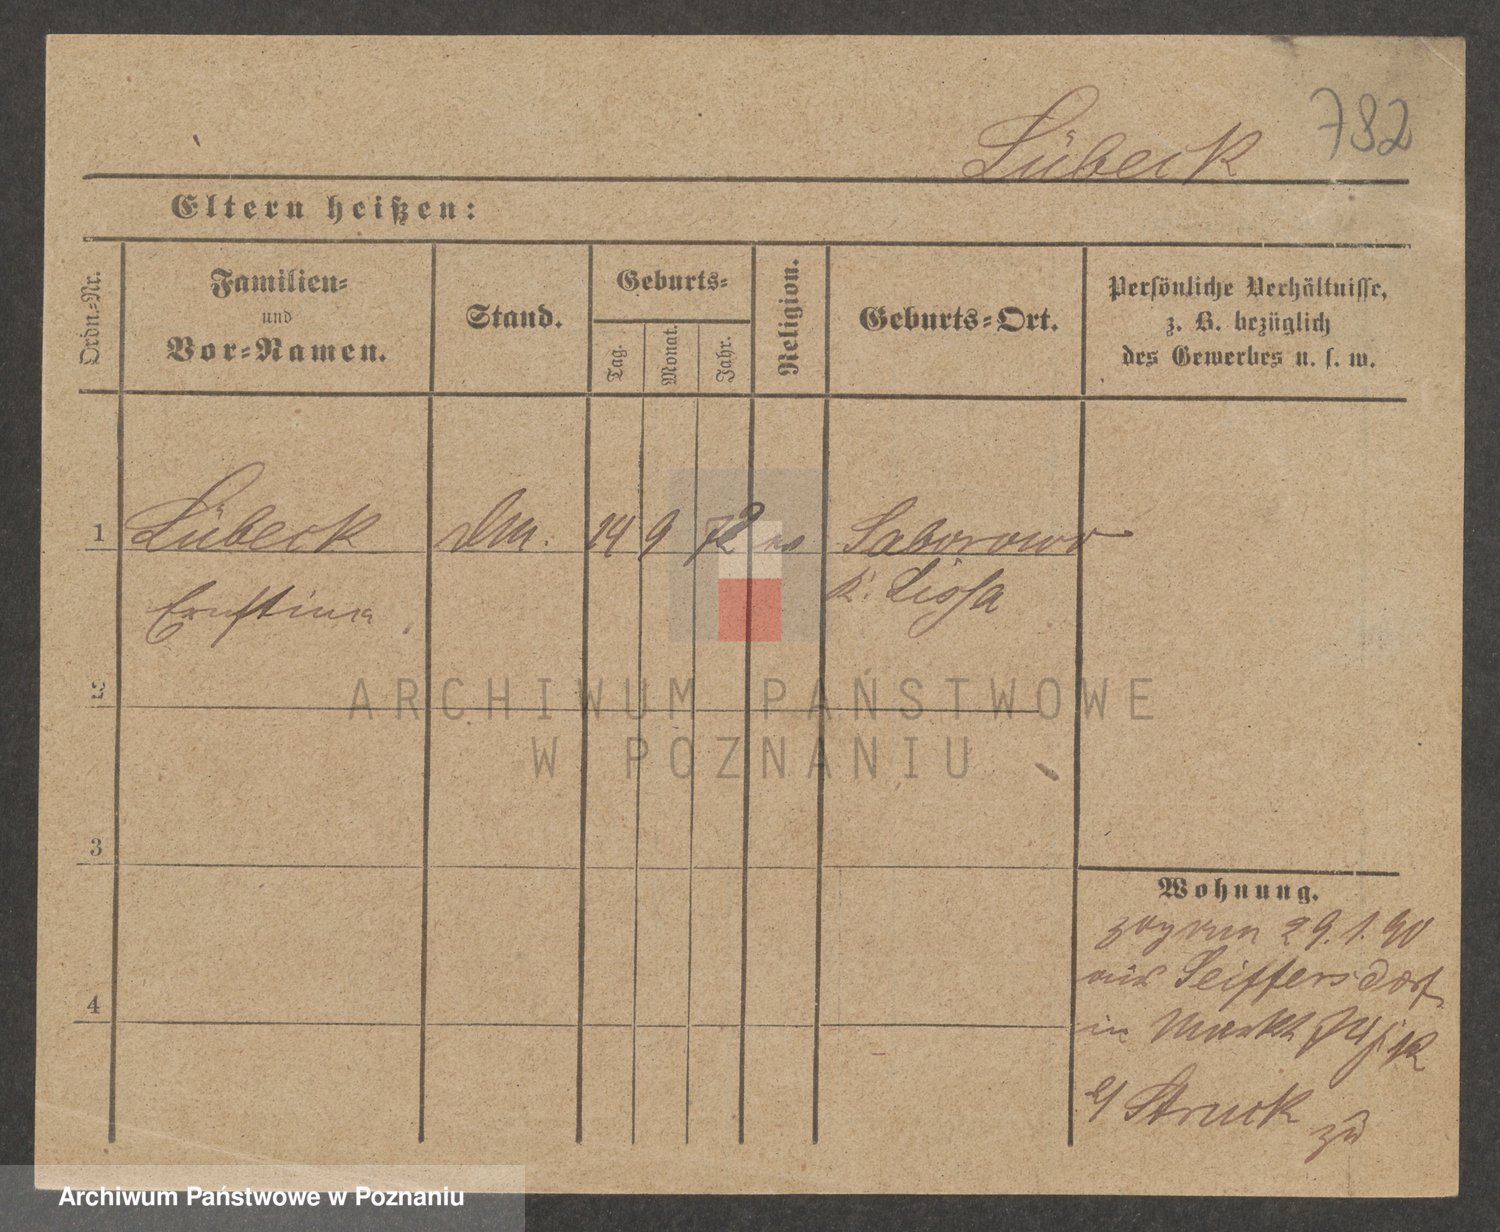 782
Lübeck
Eltern heißen:
Ordn.-Nr.
Familien-
und
Vor-Namen.
Stand.
Geburts-
Tag.
Monat.
Jahr.
Religion.
Geburts-Ort.
Persönliche Verhältnisse,
z. B. bezüglich
des Gewerbes u. s. w.
1 Lübeck 14 9 72 Saborowo
Ernstina Lissa
2
ARCHIWUM PAŃSTWOWE
W POZNANIU
3
Wohnung.
29.1.90
aus Seiffersdorf
4
in Markt
Struck zu
Archiwum Państwowe w Poznaniu